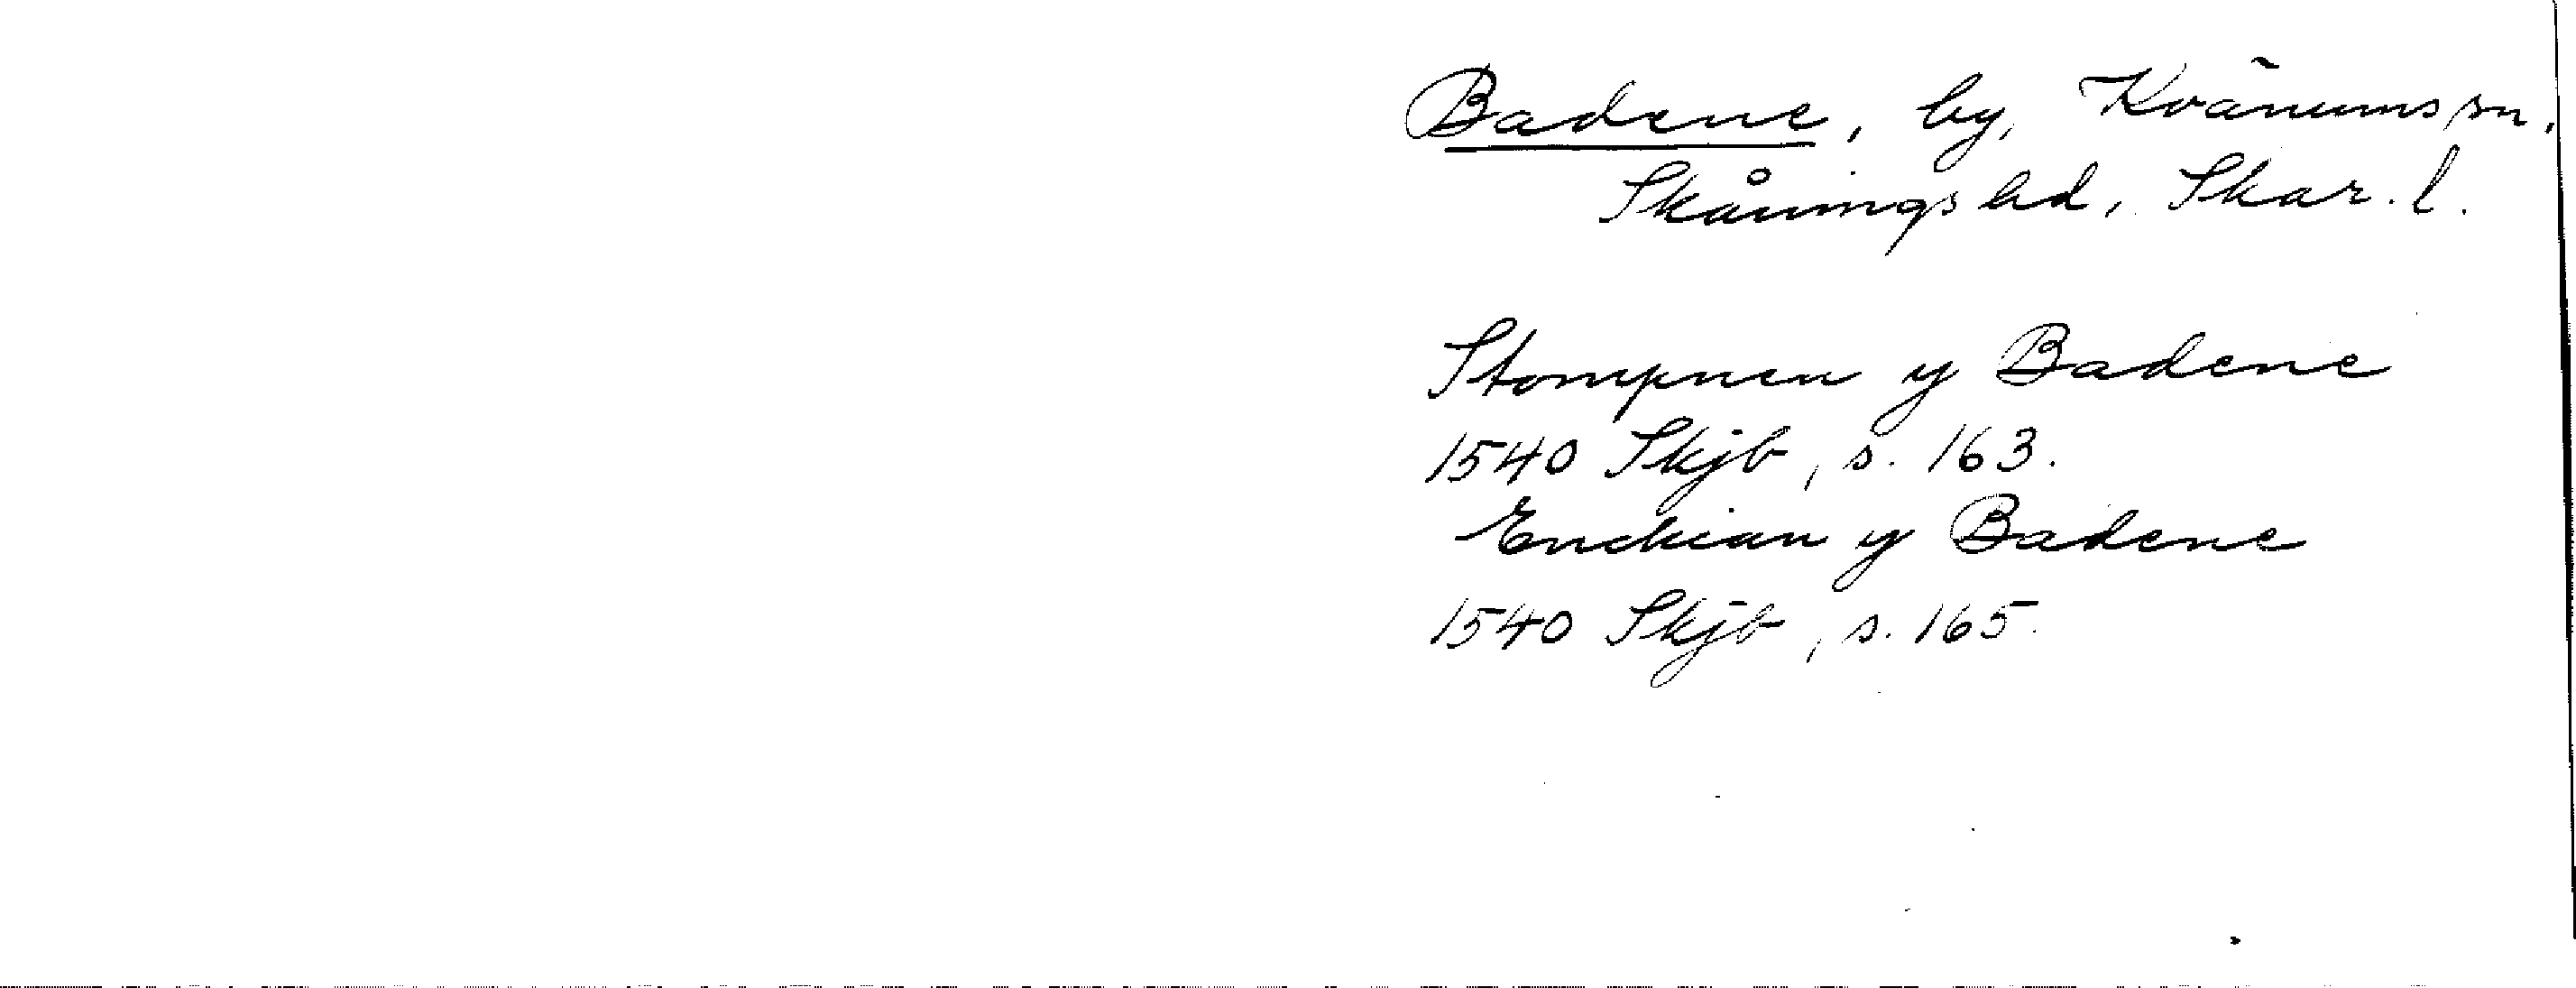 Badene, by, Kvänums sn,
Skånings hd, Skar. l.
Stompnen y Badene
1540 Skjb, s. 163.
Enckian y Badene
1540 Skjb, s. 165.